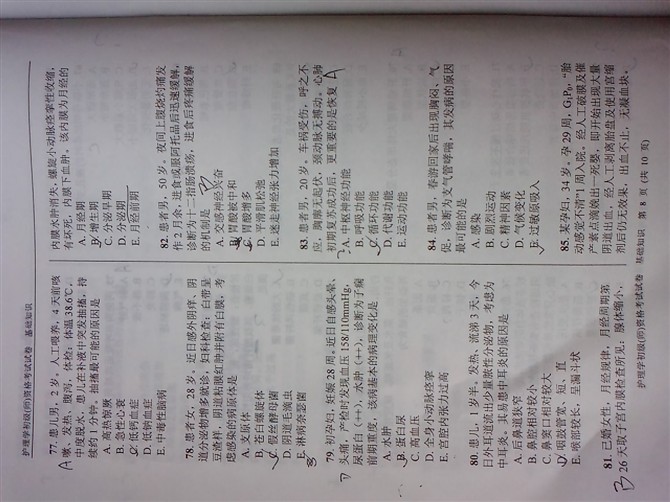 护理学初级(师)资格考试试卷 基础知识
77. 患儿男，2岁，人工喂养，4天前咳
嗽、发热、腹泻，体检：体温38.6℃，
中度脱水，患儿在补液中突发抽搐，持
续约1分钟，抽搐最可能的原因是
A. 高热惊厥
B. 急性心衰
C. 低钙血症
D. 低钠血症
E. 中毒性脑病
78. 患者女，28岁。近日感外阴痒，阴
道分泌物增多就诊，妇科检查：白带呈
豆渣样，阴道粘膜红肿并附有白膜，考
虑感染的病原体是
A. 支原体
B. 苍白螺旋体
C. 假丝酵母菌
D. 阴道毛滴虫
E. 淋病奈瑟菌
79. 初孕妇，妊娠28周。近日自感头晕、
头痛，产检时发现血压158/110mmHg，
尿蛋白(++)，水肿(++)，诊断为子痫
前期重度，该病基本的病理变化是
A. 水肿
B. 蛋白尿
C. 高血压
D. 全身小动脉痉挛
E. 宫腔内张力过高
80. 患儿，1岁半，发热、流涕3天，今
日外耳道流出少量脓性分泌物，考虑为
中耳炎。其易患中耳炎的原因是
A. 后鼻道狭窄
B. 鼻腔相对较小
C. 鼻窦口相对较大
D. 咽鼓管宽、短、直
E. 喉部较长，呈漏斗状
81. 已婚女性，月经规律，月经周期第
26天取子宫内膜检查所见：腺体缩小，
内膜水肿消失，螺旋小动脉痉挛性收缩，
有坏死，内膜下血肿。该内膜为月经的
A. 月经期
B. 增生期
C. 分泌早期
D. 分泌期
E. 月经前期
82. 患者男，50岁。夜间上腹烧灼痛发
作2月余，进食或服阿托品后迅速缓解，
诊断为十二指肠溃疡，进食后疼痛缓解
的机制是
A. 交感神经兴奋
B. 胃酸被中和
C. 胃酸增多
D. 平滑肌松弛
E. 迷走神经张力增加
83. 患者男，20岁。车祸受伤，呼之不
应，胸廓无起伏，颈动脉无搏动。心肺
初期复苏成功后，更重要的是恢复
A. 中枢神经功能
B. 呼吸功能
C. 循环功能
D. 代谢功能
E. 运动功能
84. 患者男，春游回家后出现胸闷，气
促，诊断为支气管哮喘，其发病的原因
最可能的是
A. 感染
B. 剧烈运动
C. 精神因素
D. 气候变化
E. 过敏原吸入
85. 某孕妇，34岁，孕29周，G₁P₀，“胎
动感觉不清”1周入院。经人工破膜及催
产素点滴娩出一死婴，即开始出现大量
阴道出血，经人工剥离胎盘及使用宫缩
剂后仍无效果，出血不止，无凝血块。
护理学初级(师)资格考试试卷 基础知识 第8页(共10页)